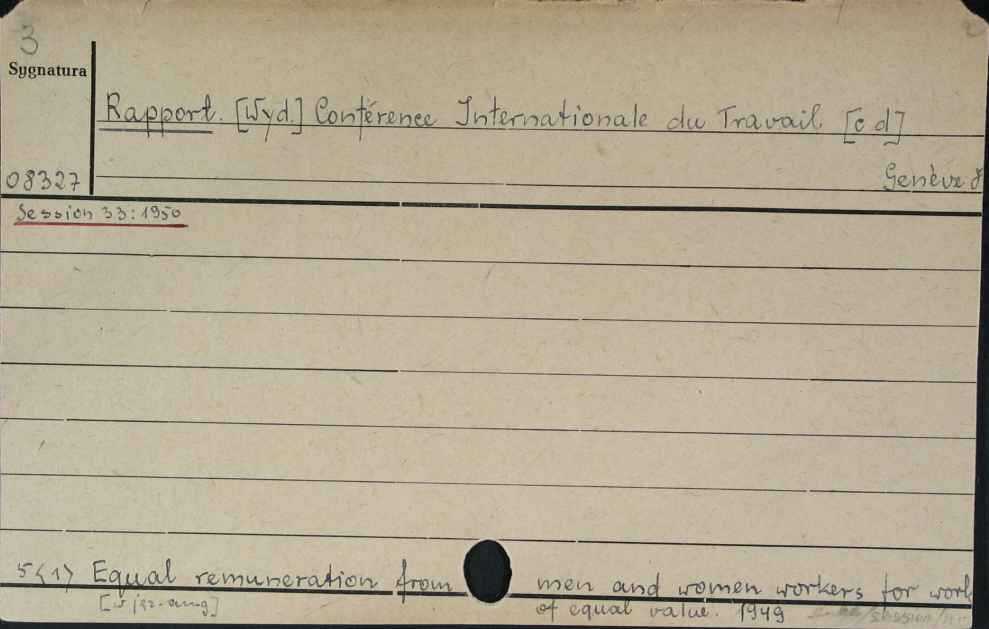 3
Sygnatura
Rapport. [Wyd.] Conférence Internationale du Travail [c d]
08327
Genève 8
Session 33:1950
5<1> Equal remuneration from men and women workers for work
[w jęz. ang] of equal value. 1949